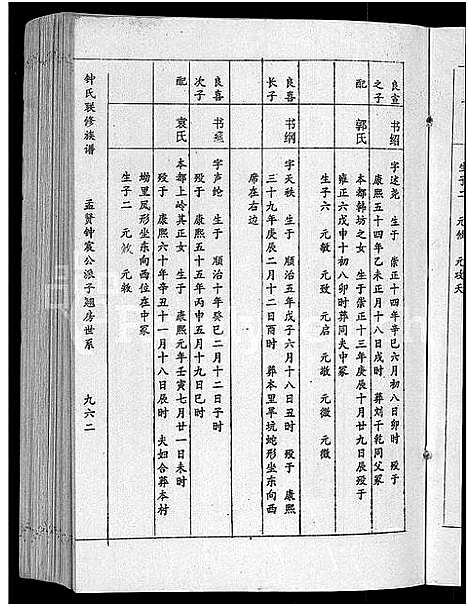 良宣之子
书绍
字述尧 生于 崇正十四年辛巳六月初八日卯时 殁于
康熙五十四年乙未正月十八日戌时 葬刘干乾同父冢
配
郭氏
本都韩坊之女 生于崇正十三年庚辰十月廿九日辰殁于
雍正六戊申十初八卯时葬同夫中冢
生子六 元敏 元致 元启 元墩 元微 元徵
良喜长子
书纲
字天秩 生于 顺治五年戊子六月十八日丑时 殁于 康熙
三十九年庚辰二月十二日酉时 葬本里旱坑蛇形坐东向西
席在右边
良喜次子
书
字声纶 生于 顺治十年癸巳二月十二日子时
殁于 康熙五十五年丙申五月十九日巳时
配
袁氏
本都上岭其正女 生于 康熙元年壬寅七月廿一日未时
殁于 康熙六十年辛丑十一月十八日辰时 夫妇合葬本村
坳里凤形坐东向西位在中冢
生子二 元敛 元牧
钟氏联修族谱
孟贤钟宸公派子翘房世系
九六二
生子二 元 元攻夭